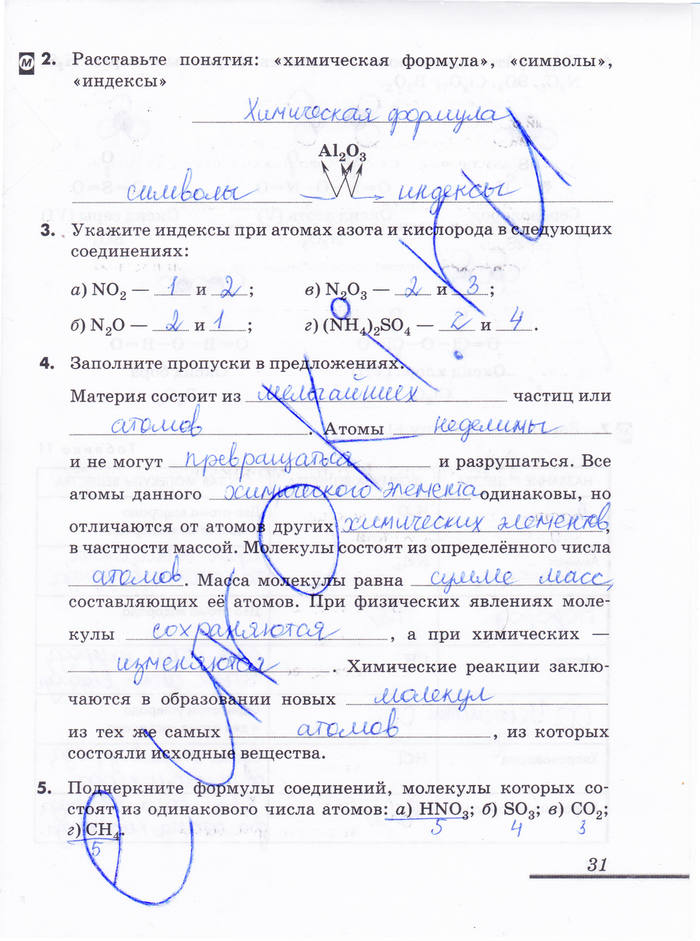 М 2. Расставьте понятия: «химическая формула», «символы»,
«индексы»
Химическая формула
Al₂O₃
символы индексы
3. Укажите индексы при атомах азота и кислорода в следующих
соединениях:
а) NO₂ — 1 и 2; в) N₂O₃ — 2 и 3;
б) N₂O — 2 и 1; г) (NH₄)₂SO₄ — 2 и 4.
4. Заполните пропуски в предложениях.
Материя состоит из мельчайших частиц или
атомов. Атомы неделимы
и не могут превращаться и разрушаться. Все
атомы данного химического элемента одинаковы, но
отличаются от атомов других химических элементов,
в частности массой. Молекулы состоят из определённого числа
атомов. Масса молекулы равна сумме масс,
составляющих её атомов. При физических явлениях моле-
кулы сохраняются, а при химических —
изменяются. Химические реакции заклю-
чаются в образовании новых молекул
из тех же самых атомов, из которых
состояли исходные вещества.
5. Подчеркните формулы соединений, молекулы которых со-
стоят из одинакового числа атомов: а) HNO₃; б) SO₃; в) CO₂;
5 4 3
г) CH₄.
5
31